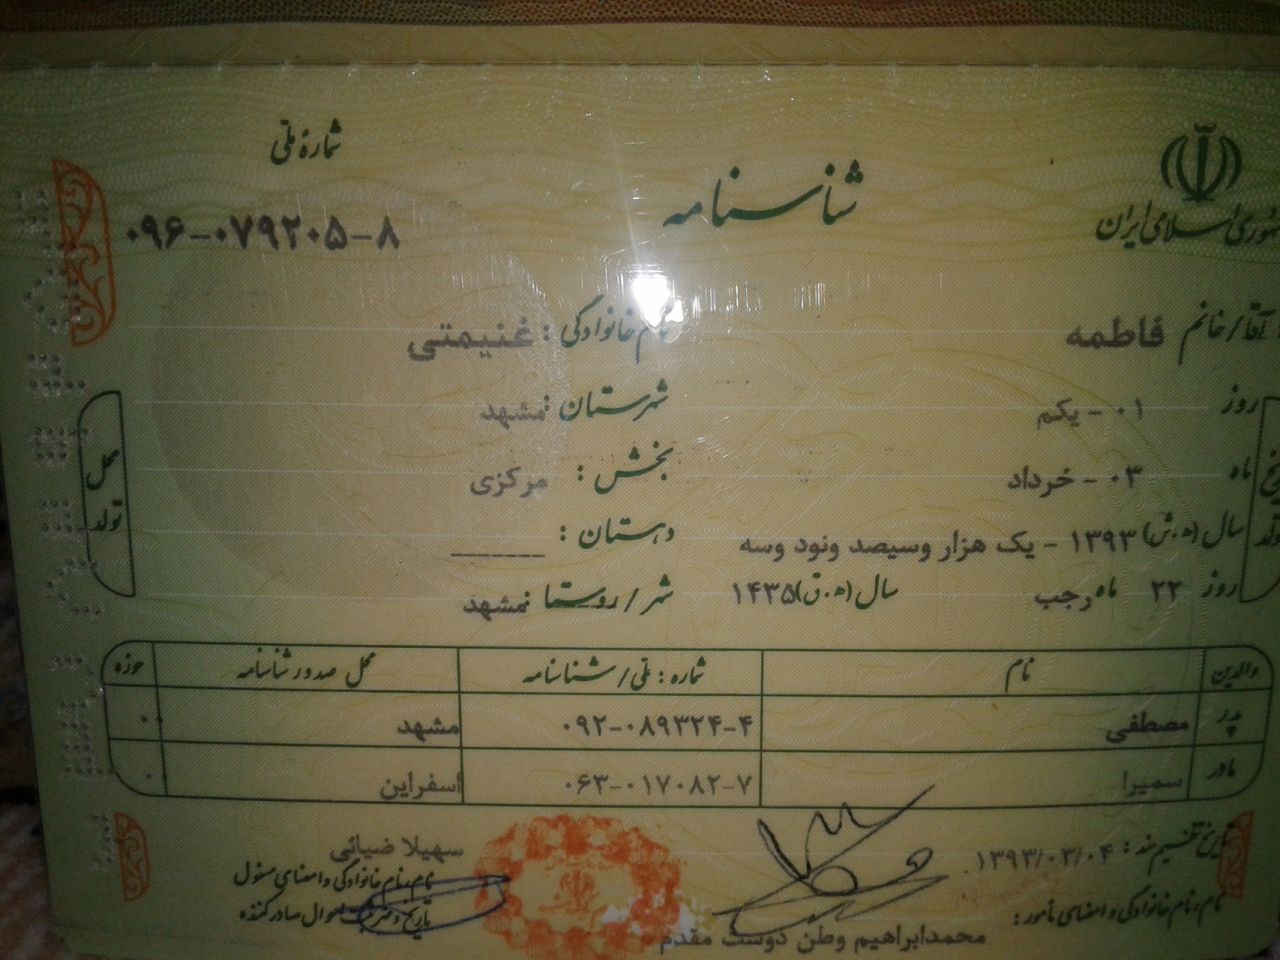 شمارهٔ ملی
شناسنامه
جمهوری اسلامی ایران
۰۹۶-۰۷۹۲۰۵-۸
آقا/خانم فاطمه
نام خانوادگی : غنیمتی
روز ۰۱ - یکم
شهرستان : مشهد
ماه ۰۳ - خرداد
بخش : مرکزی
سال (ه.ش) ۱۳۹۳ - یک هزار وسیصد ونود وسه
دهستان : ــــــــ
روز ۲۲ ماه رجب سال (ه.ق) ۱۴۳۵
شهر / روستا : مشهد
محل تولد
والدین نام شماره : ملی / شناسنامه محل صدور شناسنامه حوزه
پدر مصطفی ۰۹۲-۰۸۹۳۲۴-۴ مشهد ۰۰
مادر سمیرا ۰۶۳-۰۱۷۰۸۲-۷ اسفراین ۰
تاریخ تنظیم سند : ۱۳۹۳/۰۳/۰۴
نام، نام خانوادگی و امضای مأمور :
محمدابراهیم وطن دوست مقدم
سهیلا ضیائی
نام، نام خانوادگی و امضای مسئول